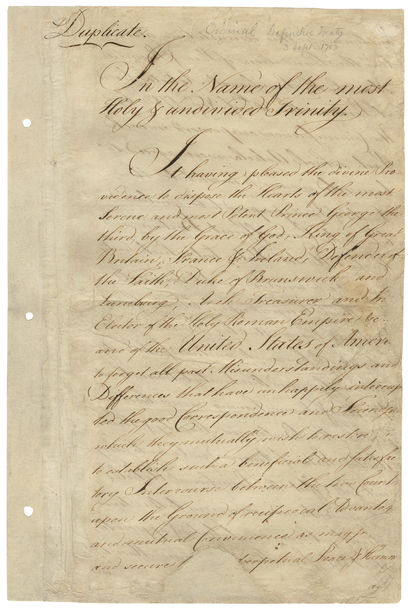 Duplicate.
Original Definitive Treaty
3 Sept. 1783
In the Name of the most
Holy & undivided Trinity.
It having pleased the divine Pro
vidence to dispose the Hearts of the most
Serene and most Potent Prince George the
third, by the Grace of God, King of Great
Britain, France & Ireland, Defender of
the Faith, Duke of Brunswick and
Lunebourg, Arch Treasurer and
Elector of the Holy Roman Empire &c.
and of the United States of Ameri
to forget all past Misunderstandings and
Differences that have unhappily interrup
ted the good Correspondence and Friends
which they mutually wish to restore;
to establish such a beneficial and satisfac
tory Intercourse between the two Count
upon the Ground of reciprocal Advanta
and mutual Convenience as may
and secure perpetual Peace & Harmon